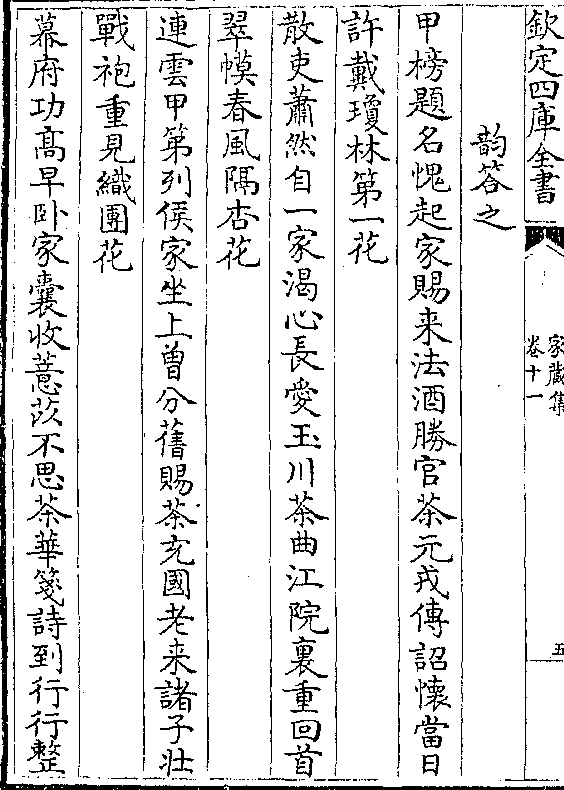 欽定四庫全書
家藏集
卷十一
五
韵答之
甲榜題名愧起家賜来法酒勝官茶元戎傳詔懷當日
許戴瓊林第一花
散吏蕭然自一家渴心長愛玉川茶曲江院裏重回首
翠幙春風隔杏花
連雲甲第列侯家坐上曽分舊賜茶充國老来諸子壮
戰袍重見織團花
幕府功髙早卧家囊收薏苡不思茶華箋詩到行行整